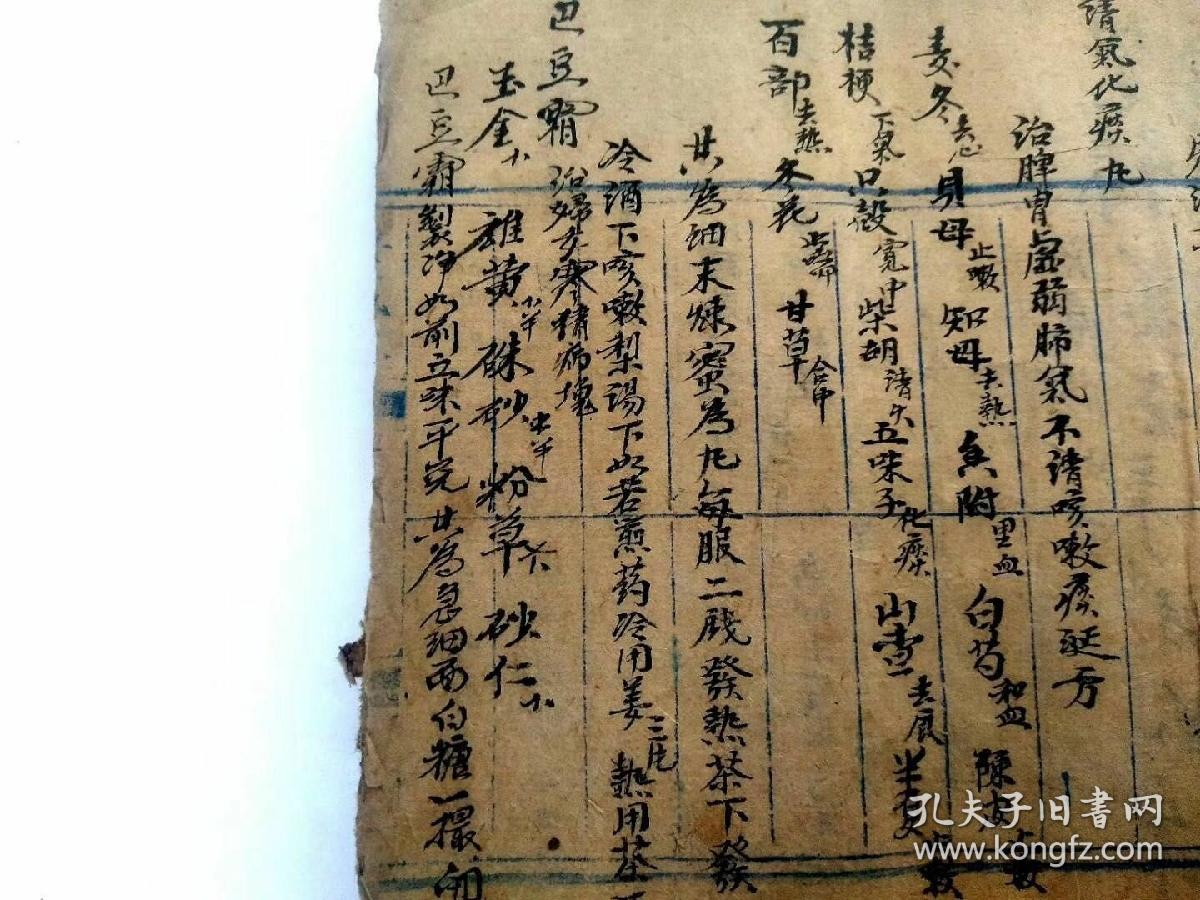 清氣化痰丸
治脾胃虛弱肺氣不清咳嗽痰延方
麦冬去心 貝母止嗽 知母去熱 香附里血 白芍和血 陳皮
桔梗下氣 只殼寬中 柴胡清火 五味子化痰 山查去 半夏
百部去熱 冬花止嗽 甘草合中
共為細末煉蜜為丸每服二戔發熱茶下發
冷酒下咳嗽梨湯下此若煎药冷用姜三片 熱用茶
巴豆霜 治婦女寒積病塊
玉金 雄黄 硃砂 粉草 砂仁
巴豆霜製净如前五味平兑共為急細面白糖一撮
孔夫子旧书网
www.kongfz.com